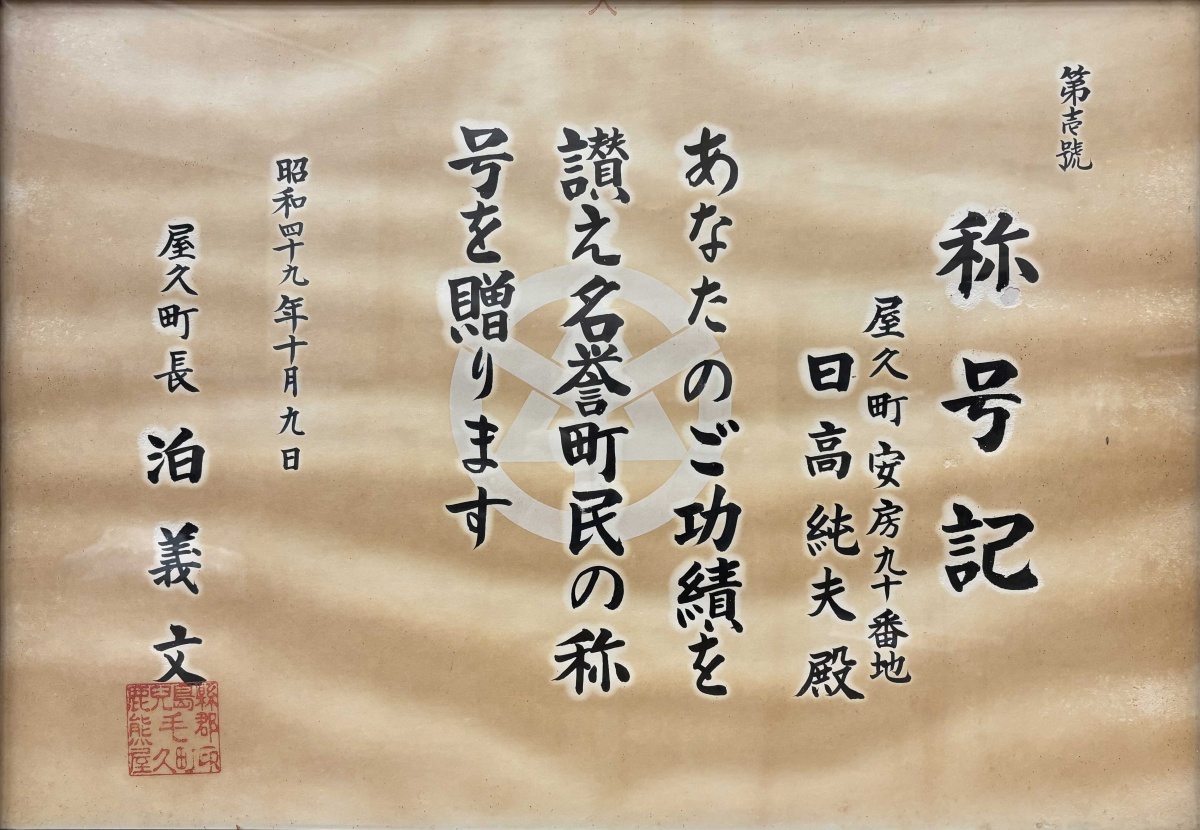 第壱號
称号記
屋久町安房九十番地
日高純夫殿
あなたのご功績を
讃え名誉町民の称
号を贈ります
昭和四十九年十月九日
屋久町長 泊義文
鹿兒島縣
熊毛郡
屋久町印